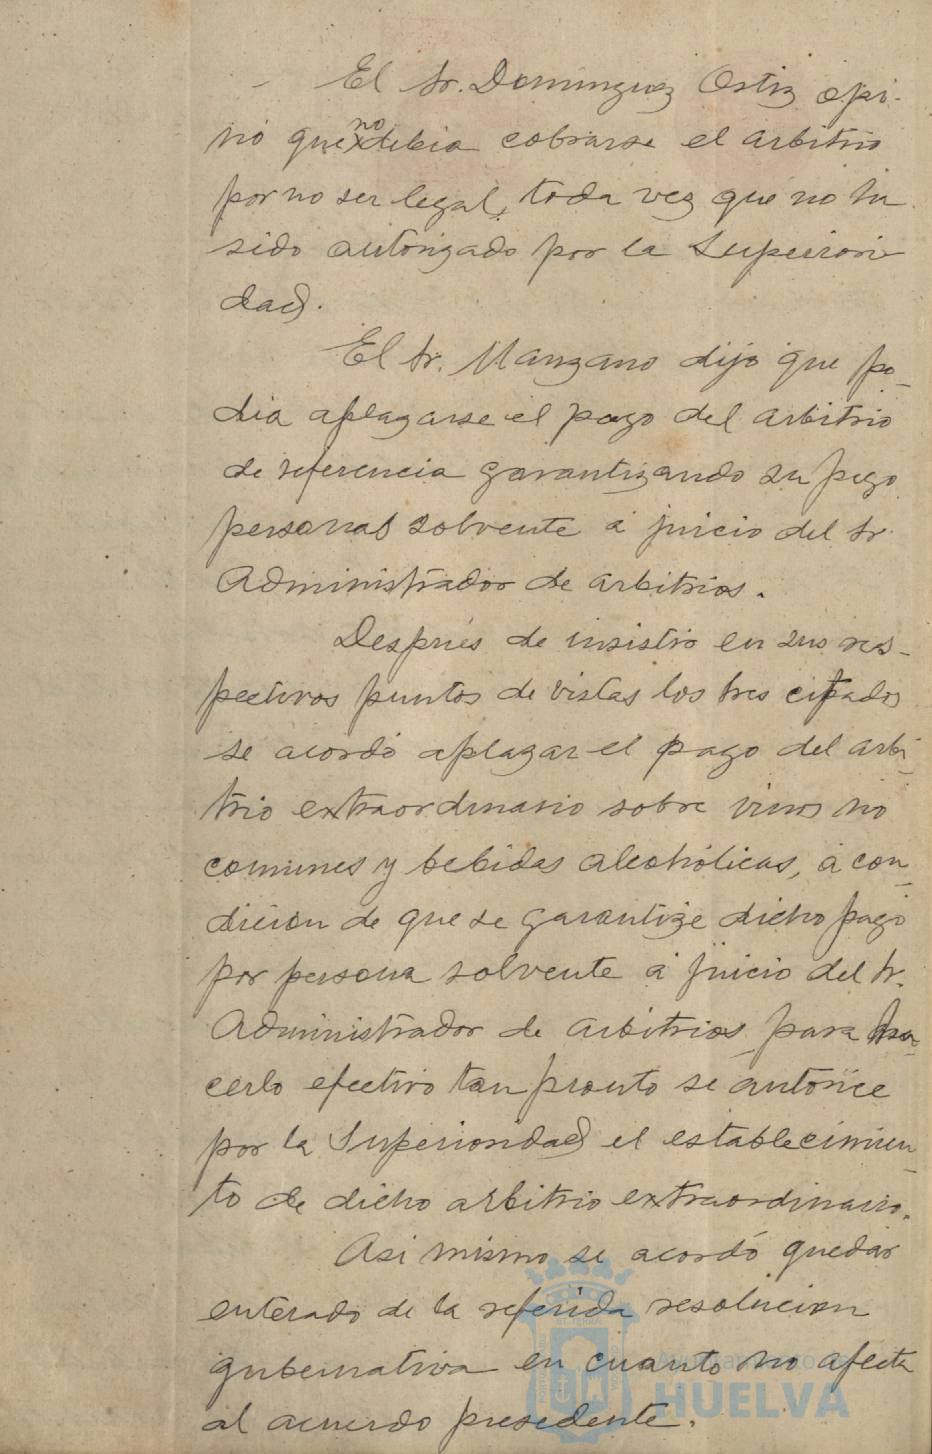 El Sr. Dominguez Ortiz opi-
nó que no debia cobrarse el arbitrio
por no ser legal, toda vez que no ha
sido autorizado por la Superiori
dad.
El Sr. Manzano dijo que po-
dia aplazarse el pago del arbitrio
de referencia garantizando su pago
personas solvente á juicio del Sr.
Administrador de arbitrios.
Después de insistir en sus res-
pectivos puntos de vistas los tres citados
se acordó aplazar el pago del arbi-
trio extraordinario sobre vinos no
comunes y bebidas alcohólicas, á con-
dición de que se garantize dicho pago
por persona solvente á juicio del Sr.
Administrador de arbitrios para ha-
cerlo efectivo tan pronto se autorice
por la Superioridad el establecimien-
to de dicho arbitrio extraordinario.
Asi mismo se acordó quedar
enterado de la referida resolucion
gubernativa en cuanto no afecta
al acuerdo presedente.
Ayuntamiento de
HUELVA